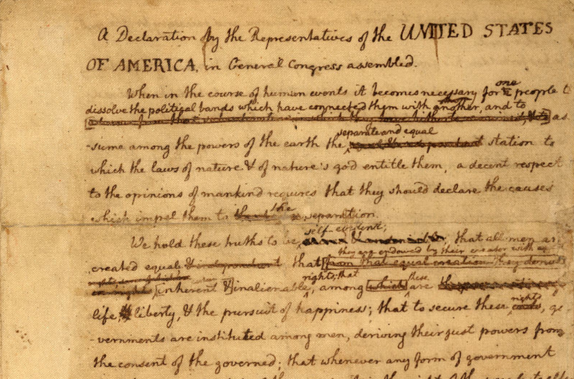 A Declaration by the Representatives of the UNITED STATES
OF AMERICA, in General Congress assembled.
When in the course of human events it becomes necessary for one people to
dissolve the political bands which have connected them with another, and to
as-
-sume among the powers of the earth the separate and equal station to
which the laws of nature & of nature's god entitle them, a decent respect
to the opinions of mankind requires that they should declare the causes
which impel them to the separation.
We hold these truths to be self-evident; that all men are
created equal & independent that from that equal creation they derive
they are endowed by their creator with
rights that
inherent & inalienable, among which these are
life, & liberty, & the pursuit of happiness; that to secure these rights, go-
-vernments are instituted among men, deriving their just powers from
the consent of the governed; that whenever any form of government